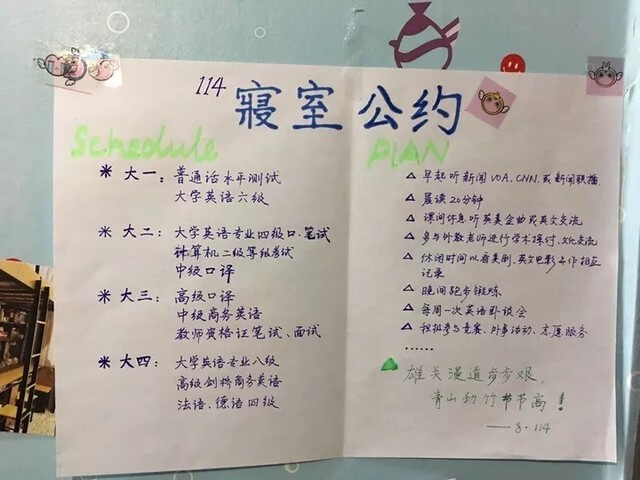 114 寝室公约
Schedule
米 大一：普通话水平测试
大学英语六级
米 大二：大学英语专业四级口、笔试
计算机二级等级考试
中级口译
米 大三：高级口译
中级商务英语
教师资格证笔试、面试
米 大四：大学英语专业八级
高级剑桥商务英语
法语、德语四级
PLAN
△ 早起听新闻VOA、CNN、或新闻联播
△ 晨读20分钟
△ 课间休息听英美金曲或英文交流
△ 多与外教老师进行学术探讨、文化交流
△ 休闲时间以看美剧、英文电影并作相应
记录
△ 晚间跑步锻炼
△ 每周一次英语卧谈会
△ 积极参与竞赛、外事活动、志愿服务
……
雄关漫道步步艰，
青山劲竹节节高！
——8·114